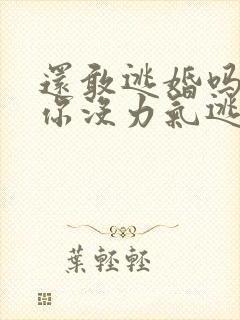 還敢逃婚吗
你没力氣逃
葉輕輕